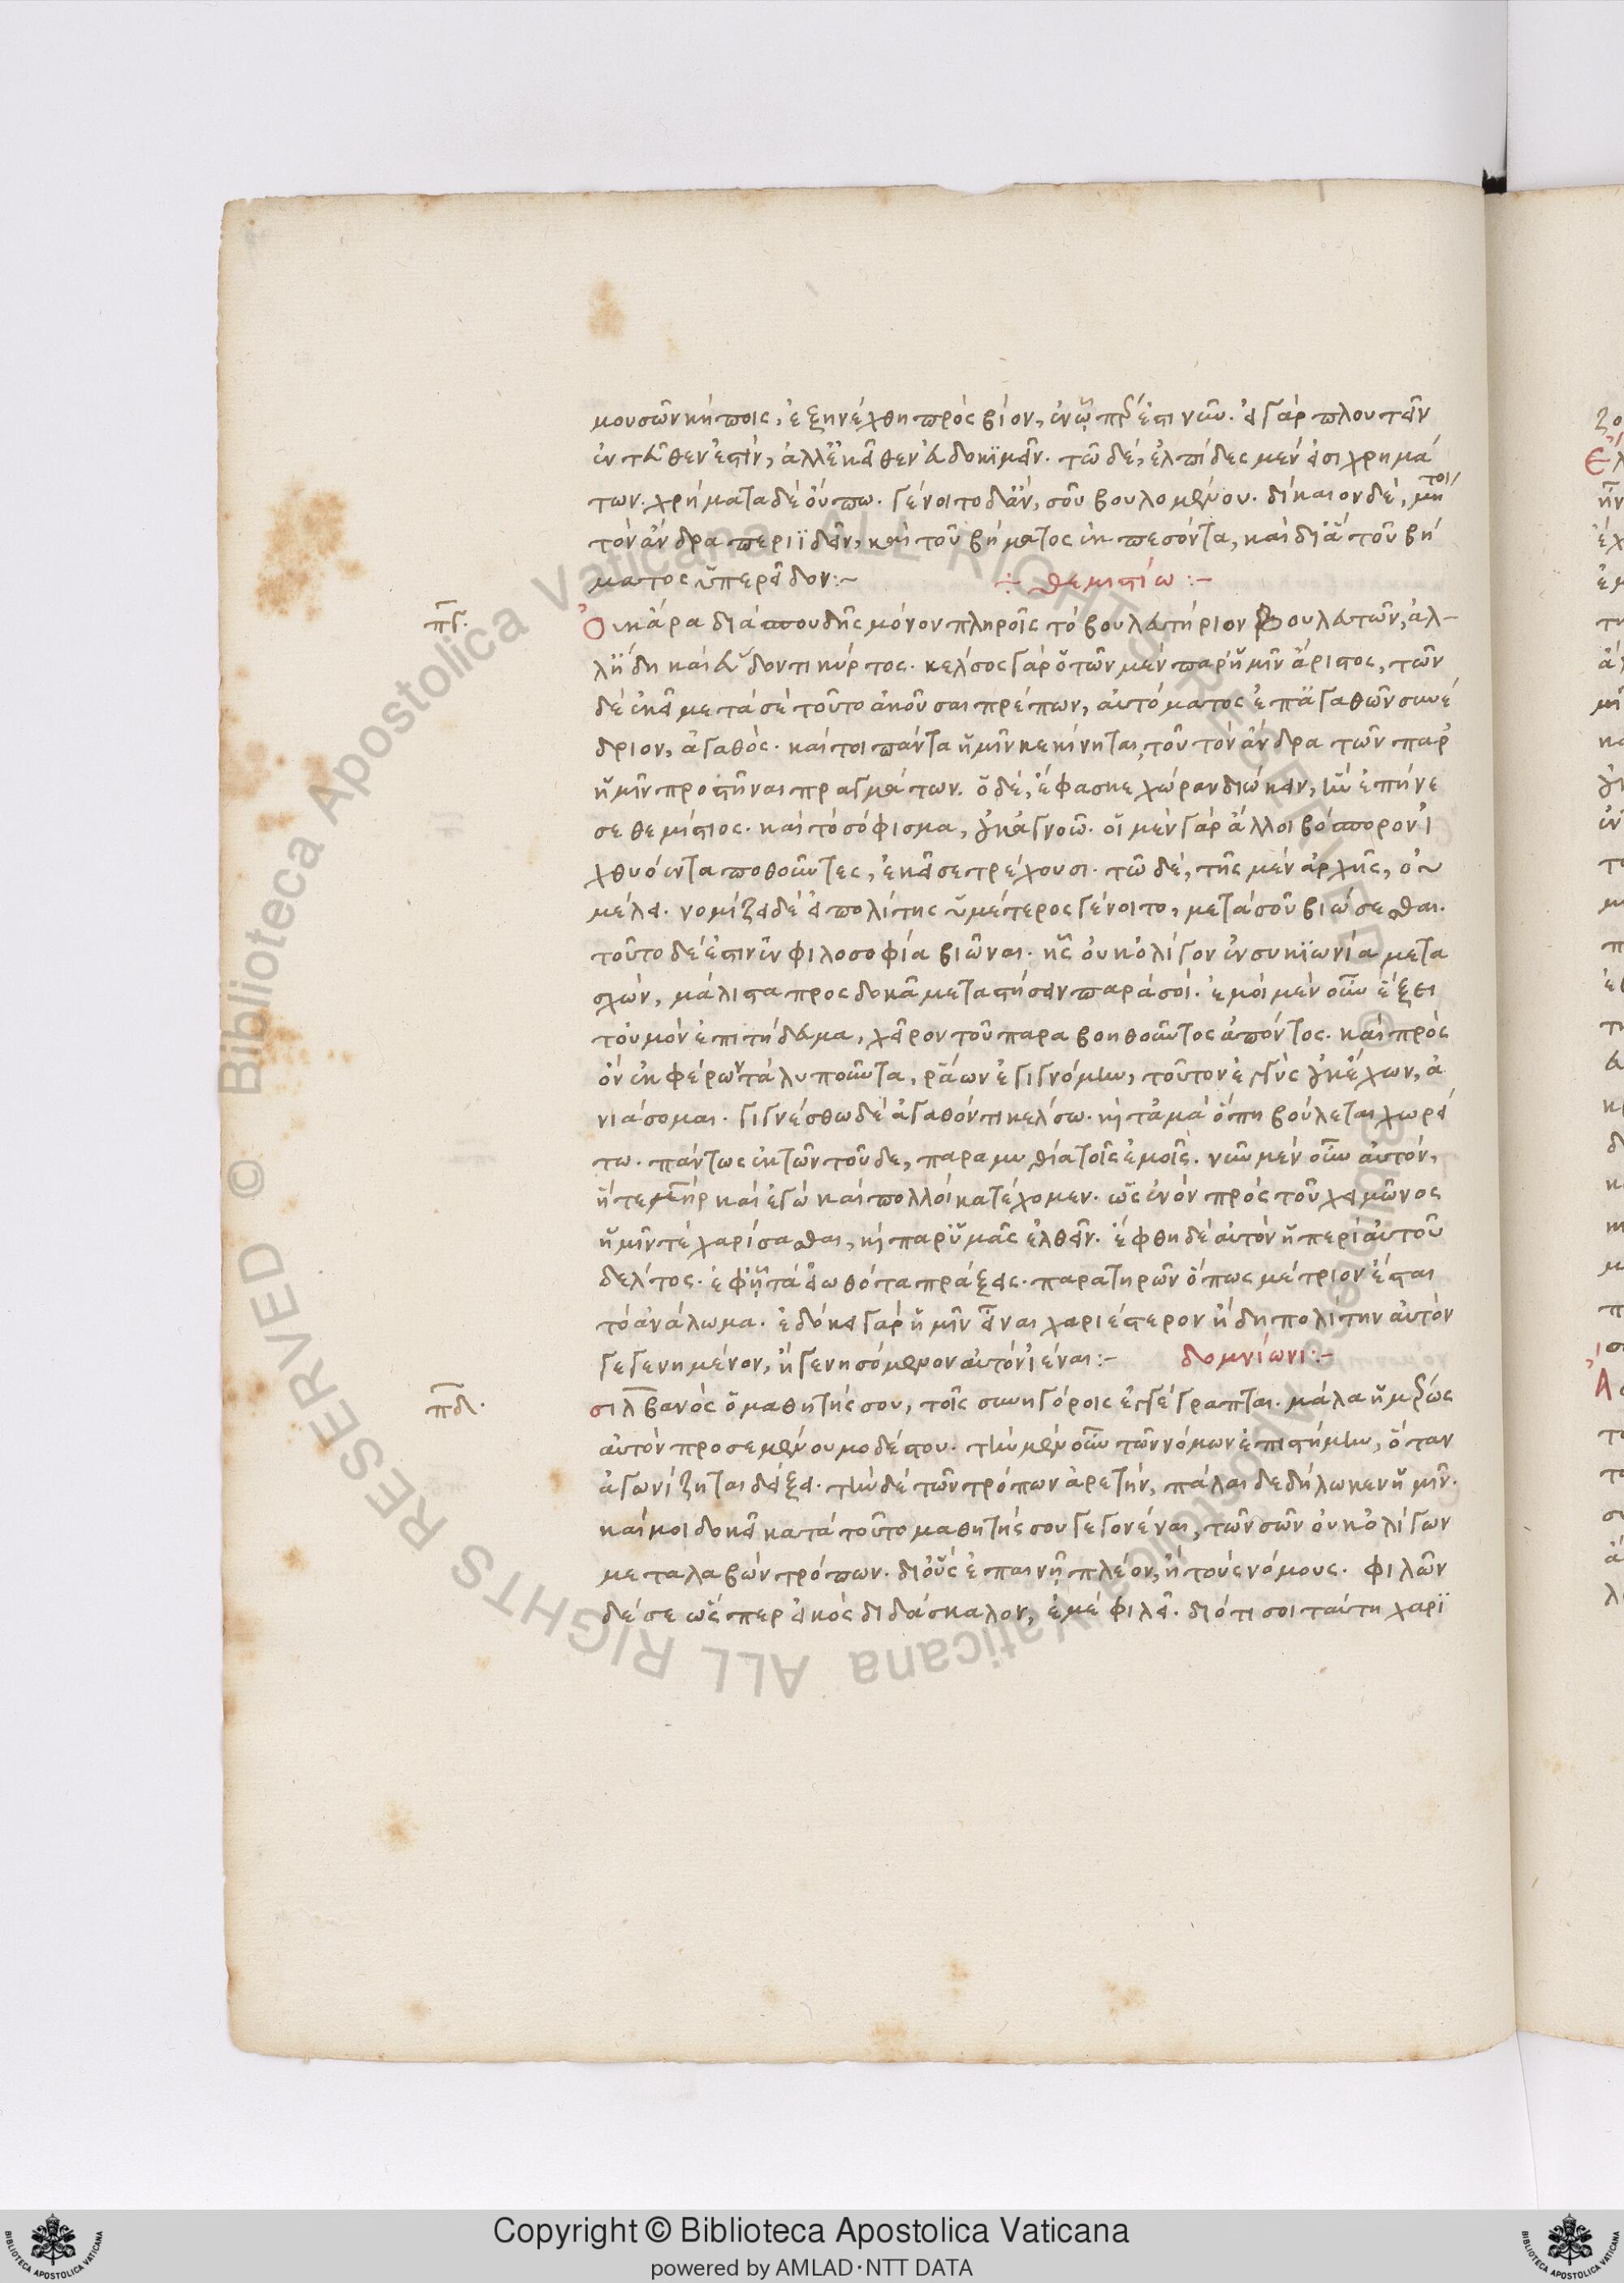 μουσῶν κήποις, ἐξηνέχθη πρὸς βίον, ἐν ᾧ πρ ἐστι νῦν. εἰ γὰρ πλουτεῖν
ἐντεῦθεν ἐστὶν, ἀλλ' ἐκεῖθεν εὐδοκϊμεῖν. τῶ δὲ, ἐλπίδες μὲν εἰσι χρημά
των. χρήματα δὲ οὔπω. γένοιτο δ' ἂν, σοῦ βουλομένου. δίκαιον δὲ, μήτοι
τὸν ἄνδρα περιϊδεῖν, καὶ τοῦ βήματος ἐκπεσόντα, καὶ δι' ἃ τοῦ βή
ματος ὑπερεῖδον:~
÷ θεμιστίω :~
πγ.
Οὐκ ἄρα διὰ σπουδῆς μόνον πληροῖς τὸ βουλευτήριον βουλευτῶν, ἀλ-
λ' ἤδη καὶ εὕδοντι κύρτος. κέλσος γὰρ ὁ τῶν μὲν παρ' ἡμῖν ἄριστος, τῶν
δὲ ἐκεῖ μετὰ σὲ τοῦτο ἀκοῦσαι πρέπων, αὐτόματος ἐπ' ἀγαθῶν συνέ
δριον, ἀγαθός. καίτοι πάντα ἡμῖν κεκίνηται, τοῦ τὸν ἄνδρα τῶν παρ'
ἡμῖν προστῆναι πραγμάτων. ὁ δὲ, ἔφασκε χώραν διώκειν, ἣν ἐπήνε
σε θεμίστιος. καὶ τὸ σόφισμα, οὐκ ἀγνοῶ. οἱ μὲν γὰρ ἄλλοι βόσπορον ἰ
χθυόεντα ποθοῦντες, ἐκεῖσε τρέχουσι. τῶ δὲ, τῆς μὲν ἀρχῆς, οὐ
μέλει. νομίζει δὲ εἰ πολίτης ὑμέτερος γένοιτο, μετὰ σοῦ βιώσεσθαι.
τοῦτο δέ ἐστιν ἐν φιλοσοφία βιῶναι. ἧς οὐκ ὀλίγον ἐν συκϊωνία μετα
σχὼν, μάλιστα προσδοκᾶ μεταστήσειν παρὰ σοί. ἐμοὶ μὲν οὖν ἕξει
τοὐμὸν ἐπιτήδευμα, χεῖρον τοῦ παραβοηθοῦντος ἀπόντος. καὶ πρὸς
ὃν ἐκφέρων τὰ λυποῦντα, ῥάων ἐγιγνόμην, τοῦτον ἐγγὺς οὐκ ἔχων, ἀ
νιάσομαι. γιγνέσθω δὲ ἀγαθόν τι κέλσω. καὶ τἀμὰ ὅπη βούλεται χωρεί
τω. πάντως ἐκ τῶν τοῦδε, παραμυθία τοῖς ἐμοῖς. νῦν μὲν οὖν αὐτὸν,
ἥ τε μήτηρ καὶ ἐγὼ καὶ πολλοὶ κατέχομεν. ὡς ἐνὸν πρὸς τοῦ χειμῶνος
ἡμῖν τὲ χαρίσασθαι, καὶ παρ' ὑμᾶς ἐλθεῖν. ἔφθη δὲ αὐτὸν ἡ περὶ αὐτοῦ
δέλτος. ἐφ' ᾗ τὰ εἰωθότα πράξεις. παρατηρῶν ὅπως μέτριον ἔσται
τὸ ἀνάλωμα. ἐδόκει γὰρ ἡμῖν εἶναι χαριέστερον ἤδη πολίτην αὐτὸν
γεγενημένον, ἢ γενησόμενον αὐτὸν ἰέναι:~
δομνίωνι:~
πδ.
σιλβανὸς ὁ μαθητής σου, τοῖς συνηγόροις ἐγγέγραπται. μάλα ἡμέρως
αὐτὸν προσεμένου μοδέστου. τὴν μὲν οὖν τῶν νόμων ἐπιστήμην, ὅταν
ἀγωνίζηται δείξει. τὴν δὲ τῶν τρόπων ἀρετὴν, πάλαι δεδήλωκεν ἡμῖν.
καίμοι δοκεῖ κατὰ τοῦτο μαθητής σου γεγονέναι, τῶν σῶν οὐκ ὀλίγων
μεταλαβὼν τρόπων. δι' οὓς ἐπαινῇ πλέον, ἢ τοὺς νόμους. φιλῶν
δέ σε ὥσπερ εἰκὸς διδάσκαλον, ἐμὲ φιλεῖ. διότι σοι ταύτη χαρϊ
Copyright © Biblioteca Apostolica Vaticana
powered by AMLAD·NTT DATA